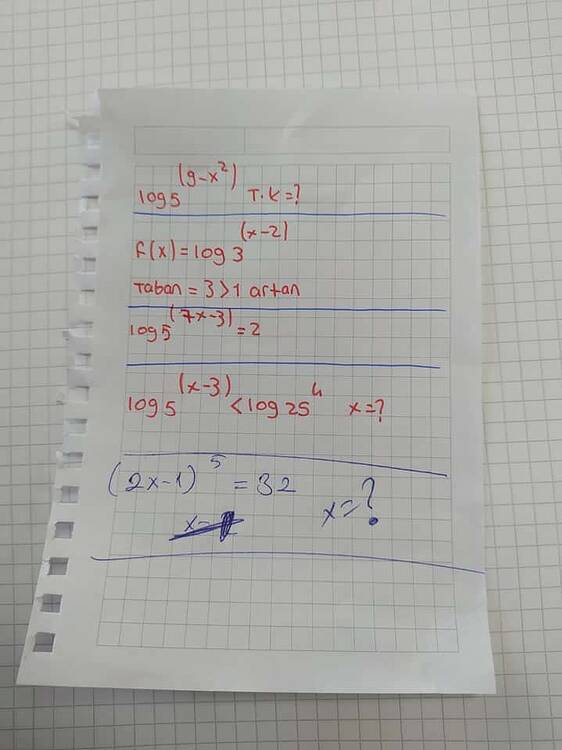 log5^(9-x²) T.K=?
f(x)=log3^(x-2)
Taban = 3>1 artan
log5^(7x-3) = 2
log5^(x-3) < log25^4 x=?
(2x-1)^5 = 32 x=?